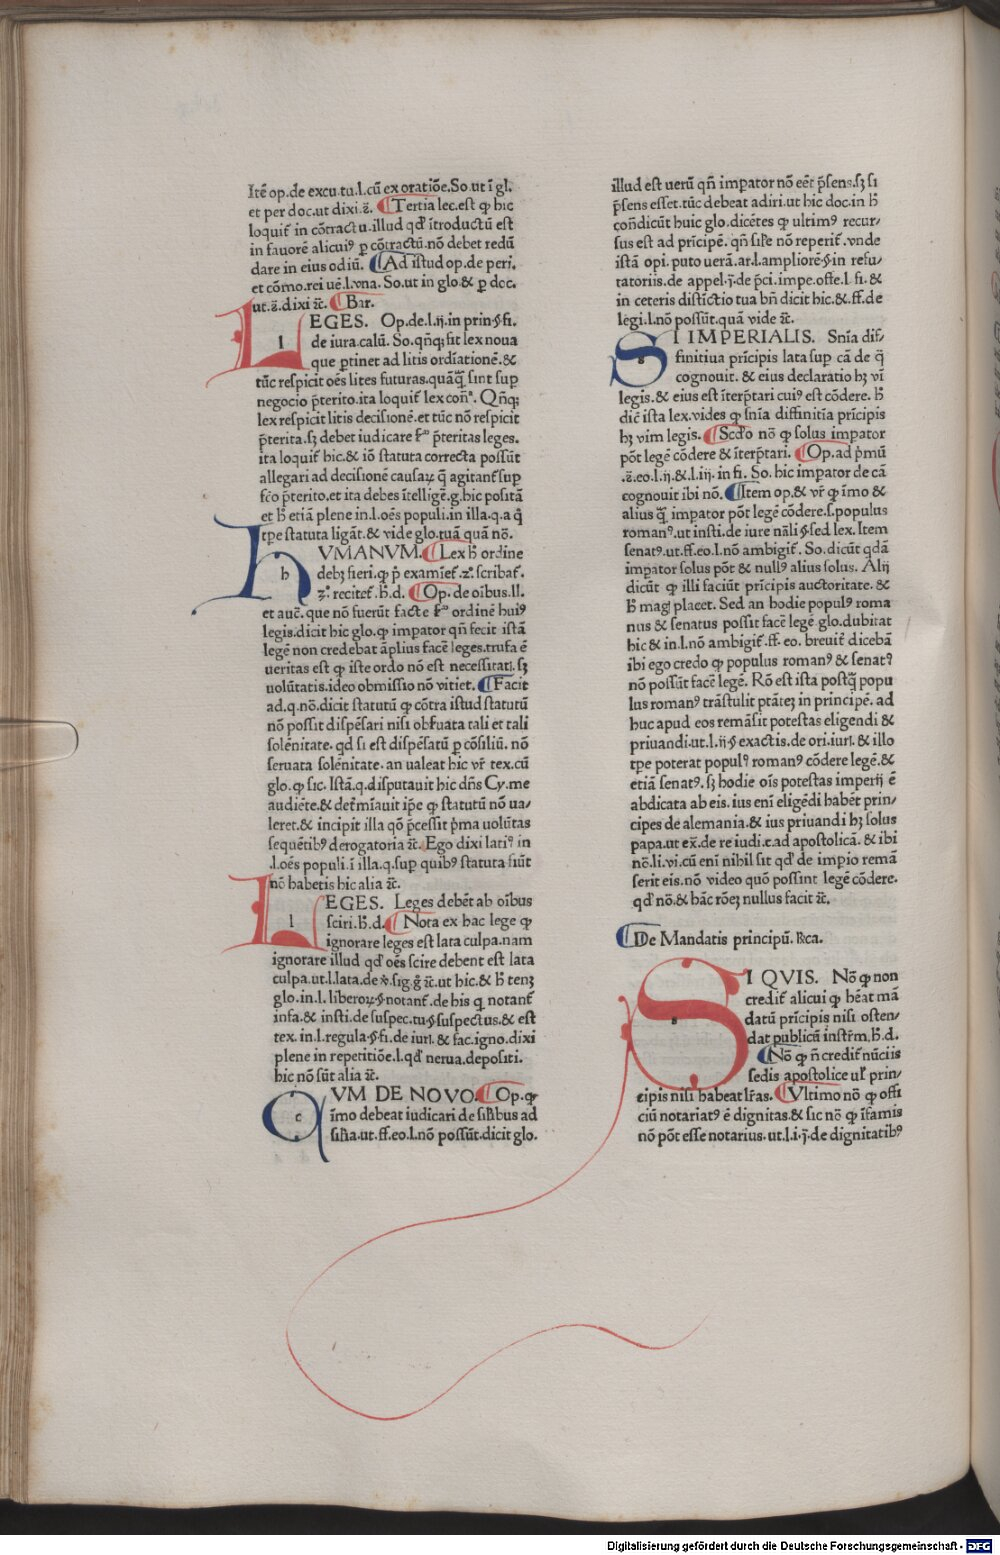 Itē op.de excu.tu.l.cū ex oratiōe.So.ut ī gl.
et per doc.ut dixi.z̄. ¶Tertia lec.est ꝙ hic
loquit᷑ in cōtractu.illud qd̕ ītroductū est
in fauorē alicuiꝰ ꝑ cōtractū.nō debet redū
dare in eius odiū. ¶Ad istud op.de peri.
et cōmo.rei uē.l.vna. So.ut in glo.& ꝑ doc.
ut.z̄.dixi ⁊c̄. ¶Bar.
LEGES. Op.de.l.ij.in prin.& fi.
de iura.calū. So.qn̄qꝫ sit lex noua
que ꝑtinet ad litis ordīationē.&
tūc respicit oēs lites futuras.quāꝗ̄ sint sup
negocio p̄terito.ita loquit᷑ lex con̄ᵃ. Qn̄qꝫ
lex respicit litis decisionē.et tūc nō respicit
p̄terita.sꝫ debet iudicare ẜᵐ p̄teritas leges.
ita loquit᷑ hic.& iō statuta correcta possūt
allegari ad decisionē causaꝝ ꝙ agitant᷑ sup
fc̄o p̄terito.et ita debes ītelligē.g.hic positā
et h̄ etiā plene in.l.oēs populi.in illa.q.a q̄
tp̄e statuta ligāt.& vide glo.tuā quā nō.
hVMANVM. ¶Lex h̄ ordine
debꝫ fieri.ꝙ p̄ examīet᷑.zᵒ.scribat᷑.
ꝫᵒ.recitet᷑.h̄.d. ¶Op.de oībus.ll.
et auc̄.que nō fuerūt facte ẜᵐ ordinē huiꝰ
legis.dicit hic glo.ꝙ impator qn̄ fecit istā
legē non credebat āplius facē leges.trufa ē
ueritas est ꝙ iste ordo nō est necessitatꝭ.sꝫ
uolūtatis.ideo obmissio nō vitiet. ¶Facit
ad.q.nō.dicit statutū ꝙ cōtra istud statutū
nō possit dispēsari nisi obẜuata tali et tali
solēnitate. qd̕ si est dispēsatū ꝑ cōsiliū. nō
seruata solēnitate. an ualeat hic vr̄ tex.cū
glo.ꝙ sic. Istā.q.disputauit hic dn̄s Cy.me
audiēte.& det̄mīauit ip̄e ꝙ statutū nō ua/
leret.& incipit illa qō p̄cessit p̄ma uolūtas
sequētibꝰ derogatoria ⁊c̄. Ego dixi latiꝰ in
.l.oēs populi.ī illa.q.sup quibꝰ statuta siūt
nō habetis hic alia ⁊c̄.
LEGES. Leges debēt ab oībus
sciri.h̄.d. ¶Nota ex hac lege ꝙ
ignorare leges est lata culpa.nam
ignorare illud qd̕ oēs scire debent est lata
culpa.ut.l.lata.de v̕.sig.g̕ ⁊c̄.ut hic.& h̄ tenꝫ
glo.in.l.liberoꝝ.§.notant᷑.de his ꝗ notant᷑
infa.& insti.de suspec.tu.§.suspectus.& est
tex.in.l.regula.§.fi.de iurꝭ.& fac.igno.dixi
plene in repetitiōe.l.qd̕ nerua.depositi.
hic nō sūt alia ⁊c̄.
qVM DE NOVO. ¶Op.ꝙ
īmo debeat iudicari de silībus ad
silīa.ut.ff.eo.l.nō possūt.dicit glo.
illud est uerū qn̄ impator nō eēt p̄sens.sꝫ si
p̄sens esset.tūc debeat adiri.ut hic doc.in h̄
con̄dicūt huic glo.dicētes ꝙ ultimꝰ recur/
sus est ad prīcipē. qn̄ siłe nō reperit᷑.vnde
istā opi.puto uerā.ar.l.ampliorē.§.in refu/
tatoriis.de appel.j̄.de p̄ci.impe.offe.l.fi.&
in ceteris distīctio tua bn̄ dicit hic.&.ff.de
legi.l.nō possūt.quā vide ⁊c̄.
SI IMPERIALIS. Snīa dif/
finitiua prīcipis lata sup cā de q̄
cognouit. & eius declaratio hꝫ vī
legis.& eius est īterp̄tari cuiꝰ est cōdere. h̄
dic̄ ista lex.vides ꝙ snīa diffinitīa prīcipis
hꝫ vim legis. ¶Scd̕o nō ꝙ solus impator
pōt legē cōdere & īterp̄tari. ¶Op.ad p̄mū
.z̄.eo.l.ij.&.l.iij.in fi. So. hic impator de cā
cognouit ibi nō. ¶Item op.& vr̄ ꝙ īmo &
alius ꝗ̄ impator pōt legē cōdere.s.populus
romanꝰ.ut insti.de iure nāli.§.sed lex. Item
senatꝰ.ut.ff.eo.l.nō ambigit᷑. So. dicūt qdā
impator solus pōt & nullꝰ alius solus. Alij
dicūt ꝙ illi faciūt prīcipis auctoritate. &
h̄ magꝭ placet. Sed an hodie populꝰ roma
nus & senatus possit facē legē glo.dubitat
hic & in.l.nō ambigit᷑.ff. eo. breuit᷑ dicebā
ibi ego credo ꝙ populus romanꝰ & senatꝰ
nō possūt facē legē. Rō est ista postꝗ̄ popu
lus romanꝰ trāstulit ptāteꝫ in principē. ad
huc apud eos remāsit potestas eligendi &
priuandi.ut.l.ij.§.exactis.de ori.iurꝭ.& illo
tp̄e poterat populꝰ romanꝰ cōdere legē.&
etiā senatꝰ.sꝫ hodie oīs potestas imperij ē
abdicata ab eis. ius enī eligēdi habēt prin/
cipes de alemania.& ius priuandi hꝫ solus
papa.ut ex̄.de re iudi.c.ad apostolicā. & ibi
nō.li.vi.cū enī nihil sit qd̕ de impīo remā
serit eis.nō video quō possint legē cōdere.
qd̕ nō.& hāc rōeꝫ nullus facit ⁊c̄.
¶De Mandatis principū. Rca.
SI QVIS. Nō ꝙ non
credit᷑ alicui ꝙ hēat mā
datū prīcipis nisi osten/
dat publicū instr̄m.h̄.d.
¶Nō ꝙ n̄ credit᷑ nūciis
sedis apostolice ul̕ prin/
cipis nisi habeat lr̄as. ¶Vltimo nō ꝙ offi
ciū notariatꝰ ē dignitas.& sic nō ꝙ īfamis
nō pōt esse notarius.ut.l.i.j̄.de dignitatibꝰ
Digitalisierung gefördert durch die Deutsche Forschungsgemeinschaft - DFG